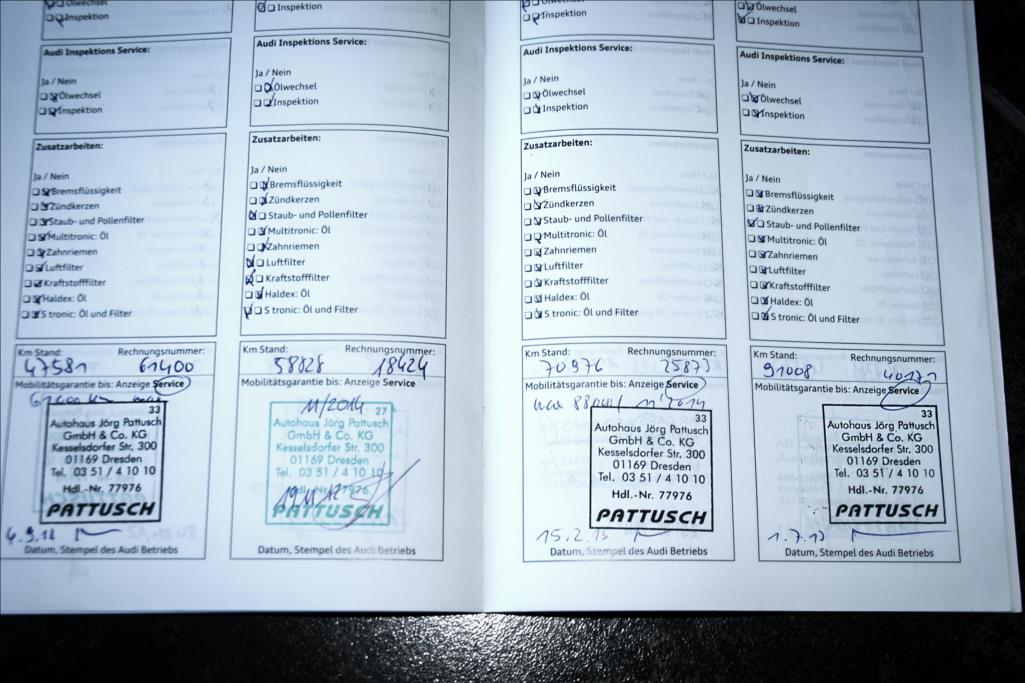 Ölwechsel
Inspektion
Audi Inspektions Service:
Ja / Nein
Ölwechsel
Inspektion
Zusatzarbeiten:
Ja / Nein
Bremsflüssigkeit
Zündkerzen
Staub- und Pollenfilter
Multitronic: Öl
Zahnriemen
Luftfilter
Kraftstofffilter
Haldex: Öl
S tronic: Öl und Filter
Km Stand: Rechnungsnummer:
47581 61400
Mobilitätsgarantie bis: Anzeige Service
33
Autohaus Jörg Pattusch
GmbH & Co. KG
Kesselsdorfer Str. 300
01169 Dresden
Tel. 03 51 / 4 10 10
Hdl.-Nr. 77976
PATTUSCH
4.9.12
Datum, Stempel des Audi Betriebs
Inspektion
Audi Inspektions Service:
Ja / Nein
Ölwechsel
Inspektion
Zusatzarbeiten:
Ja / Nein
Bremsflüssigkeit
Zündkerzen
Staub- und Pollenfilter
Multitronic: Öl
Zahnriemen
Luftfilter
Kraftstofffilter
Haldex: Öl
S tronic: Öl und Filter
Km Stand: Rechnungsnummer:
58828 18424
Mobilitätsgarantie bis: Anzeige Service
11/2014 27
Autohaus Jörg Pattusch
GmbH & Co. KG
Kesselsdorfer Str. 300
01169 Dresden
Tel. 03 51 / 4 10 10
77976
PATTUSCH
Datum, Stempel des Audi Betriebs
Ölwechsel
Inspektion
Audi Inspektions Service:
Ja / Nein
Ölwechsel
Inspektion
Zusatzarbeiten:
Ja / Nein
Bremsflüssigkeit
Zündkerzen
Staub- und Pollenfilter
Multitronic: Öl
Zahnriemen
Luftfilter
Kraftstofffilter
Haldex: Öl
S tronic: Öl und Filter
Km Stand: Rechnungsnummer:
70976 25873
Mobilitätsgarantie bis: Anzeige Service
33
Autohaus Jörg Pattusch
GmbH & Co. KG
Kesselsdorfer Str. 300
01169 Dresden
Tel. 03 51 / 4 10 10
Hdl.-Nr. 77976
PATTUSCH
15.2.13
Datum, Stempel des Audi Betriebs
Ölwechsel
Inspektion
Audi Inspektions Service:
Ja / Nein
Ölwechsel
Inspektion
Zusatzarbeiten:
Ja / Nein
Bremsflüssigkeit
Zündkerzen
Staub- und Pollenfilter
Multitronic: Öl
Zahnriemen
Luftfilter
Kraftstofffilter
Haldex: Öl
S tronic: Öl und Filter
Km Stand: Rechnungsnummer:
91008 40171
Mobilitätsgarantie bis: Anzeige Service
33
Autohaus Jörg Pattusch
GmbH & Co. KG
Kesselsdorfer Str. 300
01169 Dresden
Tel. 03 51 / 4 10 10
Hdl.-Nr. 77976
PATTUSCH
1.7.13
Datum, Stempel des Audi Betriebs